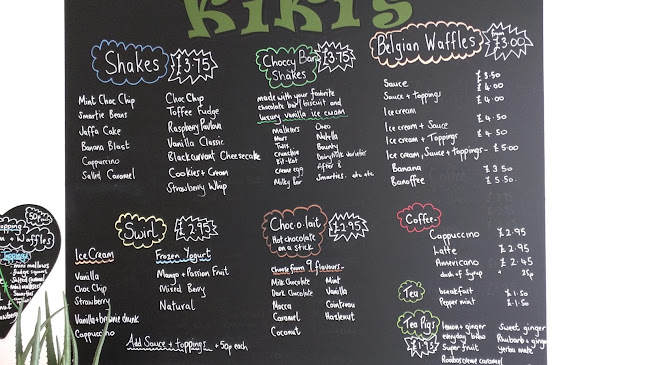 KIKI'S
Shakes £3.75
Mint Choc Chip
Smartie Beans
Jaffa Cake
Banana Blast
Cappuccino
Salted Caramel
Choc Chip
Toffee Fudge
Raspberry Pavlova
Vanilla Classic
Blackcurrant Cheesecake
Cookies + Cream
Strawberry Whip
Choccy Bar Shakes £3.75
made with your favorite
chocolate bar/biscuit and
luxury vanilla ice cream
malteasers
Mars
Twix
Crunchie
Kit-kat
creme egg
Milky bar
Oreo
Nutella
Bounty
Dairy Milk varieties
After 8
Smarties. etc etc
Belgian Waffles from £3.00
Sauce £3.50
Sauce + toppings £4.00
Ice cream £4.00
Ice cream + Sauce £4.50
Ice cream + Toppings £4.50
Ice cream, Sauce + toppings - £5.00
Banana £3.50
Banoffee £5.50
50p
Waffles
Swirl £2.95
Ice Cream
Vanilla
Choc Chip
Strawberry
Vanilla + brownie chunk
Cappuccino
Frozen Yogurt
Mango + Passion Fruit
Mixed Berry
Natural
Add Sauce + toppings + 50p each
Choc-o-lait £2.95
Hot chocolate
on a stick
Choose from 9 flavours
Milk Chocolate
Dark Chocolate
Mocca
Caramel
Coconut
Mint
Vanilla
Cointreau
Hazlenut
Coffee
Cappuccino £2.95
Latte £2.95
Americano £2.45
dash of Syrup + 25p
Tea
breakfast £1.50
Pepper mint £1.50
Tea Pigs £1.95
lemon + ginger
everyday brew
Super fruit
Rooibos creme caramel
Sweet ginger
Rhubarb + ginger
yerba mate